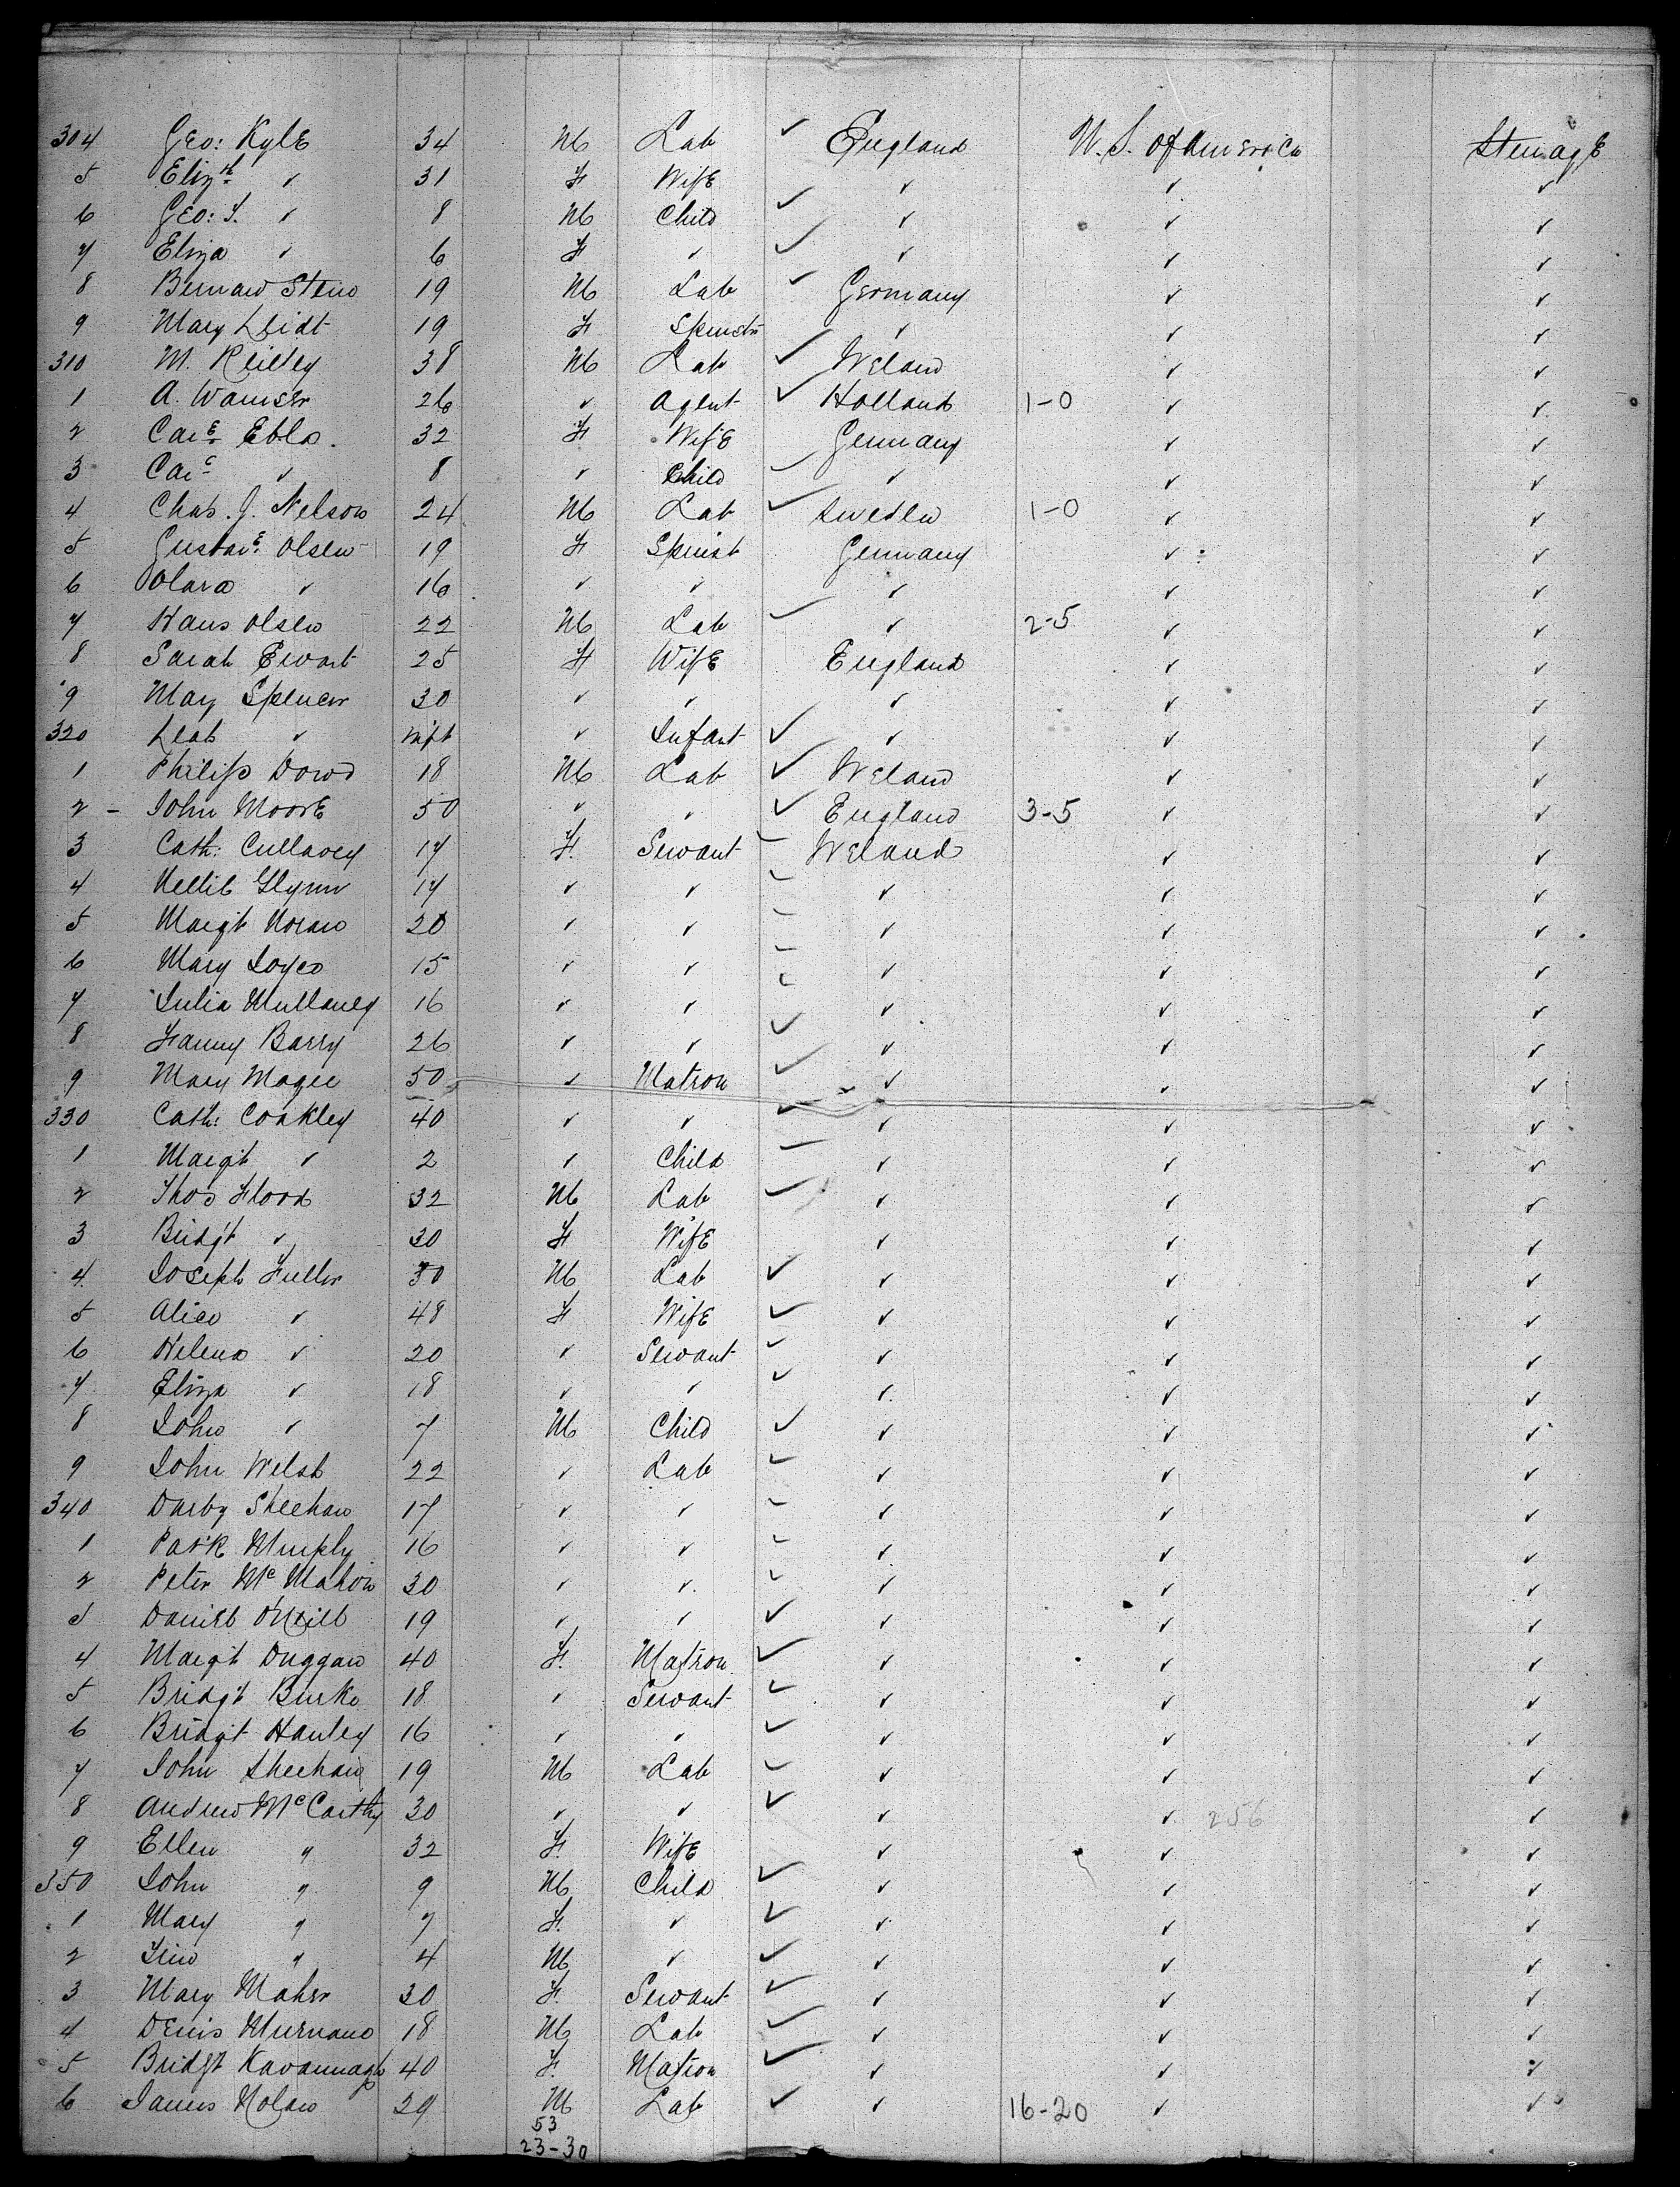 304 Geo: Kyle 34 M Lab ✓ England U. S. of America Steerage
5 Elizth ✓ 31 F Wife ✓ ✓ ✓
6 Geo: T. ✓ 8 M Child ✓ ✓ ✓ ✓
7 Eliza ✓ 6 F ✓ ✓ ✓ ✓ ✓
8 Bernard Stein 19 M Lab ✓ Germany ✓ ✓
9 Mary Leidt 19 F Spinstr ✓ ✓ ✓
310 M. Reilley 38 M Lab ✓ Ireland ✓ ✓
1 A. Wamser 26 ✓ Agent ✓ Holland 1-0 ✓ ✓
2 Care Ebla. 32 F Wife Germany ✓ ✓
3 Care ✓ 8 ✓ Child ✓ ✓ ✓ ✓
4 Chas. J. Nelson 24 M Lab ✓ Sweden 1-0 ✓ ✓
5 Gustave Olsen 19 F Spinst Germany ✓ ✓
6 Olara ✓ 16 ✓ ✓ ✓ ✓ ✓
7 Hans Olsen 22 M Lab ✓ ✓ 2-5 ✓ ✓
8 Sarah Ewart 25 F Wife England ✓ ✓
9 May Spencer 30 ✓ ✓ ✓ ✓ ✓
320 Leah ✓ inft ✓ Infant ✓ ✓ ✓ ✓
1 Philip Dowd 18 M Lab ✓ Ireland ✓ ✓
2 - John Moore 50 ✓ ✓ ✓ England 3-5 ✓ ✓
3 Cath: Cullavey 17 F. Servant ✓ Ireland ✓ ✓
4 Nellie Glynn 17 ✓ ✓ ✓ ✓ ✓ ✓
5 Margt Noran 20 ✓ ✓ ✓ ✓ ✓ ✓
6 Mary Joyce 15 ✓ ✓ ✓ ✓ ✓ ✓
7 Julia Mullaney 16 ✓ ✓ ✓ ✓ ✓ ✓
8 Fanny Barry 26 ✓ ✓ ✓ ✓ ✓ ✓
9 Mary Magee 50 ✓ Matron ✓ ✓ ✓ ✓
330 Cath: Coakley 40 ✓ ✓ ✓ ✓ ✓ ✓
1 Margt ✓ 2 ✓ Child ✓ ✓ ✓ ✓
2 Thos Flood 32 M Lab ✓ ✓ ✓ ✓
3 Bridgt ✓ 30 F Wife ✓ ✓ ✓
4 Joseph Fuller 50 M Lab ✓ ✓ ✓ ✓
5 Alice ✓ 48 F Wife ✓ ✓ ✓ ✓
6 Helena ✓ 20 ✓ Servant ✓ ✓ ✓ ✓
7 Eliza ✓ 18 ✓ ✓ ✓ ✓ ✓ ✓
8 John ✓ 7 M Child ✓ ✓ ✓ ✓
9 John Welsh 22 ✓ Lab ✓ ✓ ✓ ✓
340 Darby Sheehan 17 ✓ ✓ ✓ ✓ ✓ ✓
1 Patk Murphy 16 ✓ ✓ ✓ ✓ ✓ ✓
2 Peter McMahon 30 ✓ ✓ ✓ ✓ ✓ ✓
3 Daniel O'Neill 19 ✓ ✓ ✓ ✓ ✓ ✓
4 Margt Duggan 40 F. Matron ✓ ✓ ✓ ✓
5 Bridgt Burke 18 ✓ Servant ✓ ✓ ✓ ✓
6 Bridgt Hanley 16 ✓ ✓ ✓ ✓ ✓ ✓
7 John Sheehan 19 M Lab ✓ ✓ ✓ ✓
8 Andrew McCarthy 30 ✓ ✓ ✓ ✓ ✓ 256 ✓
9 Ellen " 32 F. Wife ✓ ✓ ✓
350 John " 9 M Child ✓ ✓ ✓ ✓
1 Mary " 7 F. ✓ ✓ ✓ ✓ ✓
2 Tim " 4 M ✓ ✓ ✓ ✓ ✓
3 Mary Maher 30 F. Servant ✓ ✓ ✓ ✓
4 Denis Murnane 18 M Lab ✓ ✓ ✓ ✓
5 Bridgt Kavannagh 40 F. Matron ✓ ✓ ✓ ✓
6 James Nolan 29 M Lab ✓ ✓ 16-20 ✓ ✓
53
23-30